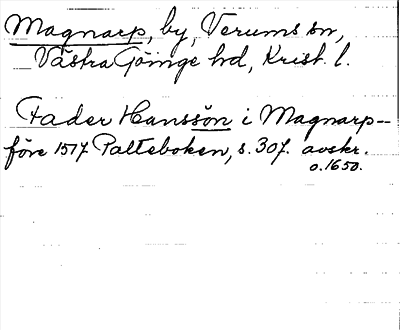 Magnarp, by, Verums sn,
Västra Göinge hd, Krist. l.
Fader Hansson i Magnarp--
före 1517 Palteboken, s. 307. avskr.
o. 1650.